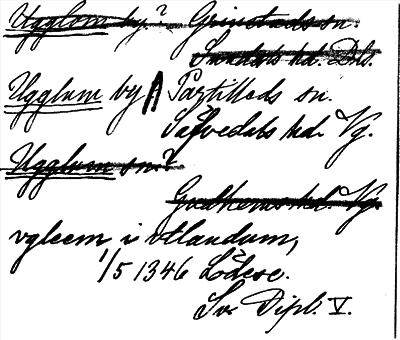 Ugglum by? Grinstads sn.
Sundals hd. Dls.
Ugglum by A Partilleds sn.
Säfvedals hd. Vg.
Ugglum sn?
Gudhems hd. Vg.
vgleem i vtlandum,
1/5 1346 Lödese.
Sv. Dipl. V.